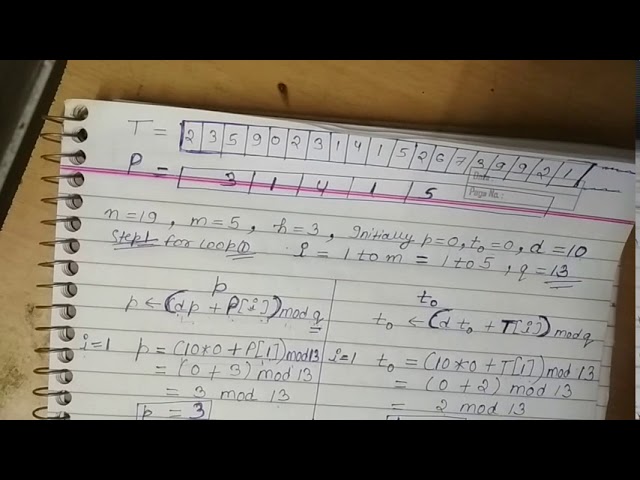 T = 2 3 5 9 0 2 3 1 4 1 5 2 6 7 3 9 9 2 1
P = 3 1 4 1 5
Page No.:
n=19, m=5, h=3, Initially p=0, t₀=0, d=10
Step1 for loop① i = 1 to m = 1 to 5, q=13
p
p ← (dp + P[i]) mod q
i=1 p = (10*0 + P[1]) mod 13
= (0 + 3) mod 13
= 3 mod 13
p = 3
t₀
t₀ ← (dt₀ + T[i]) mod q
i=1 t₀ = (10*0 + T[1]) mod 13
= (0 + 2) mod 13
= 2 mod 13